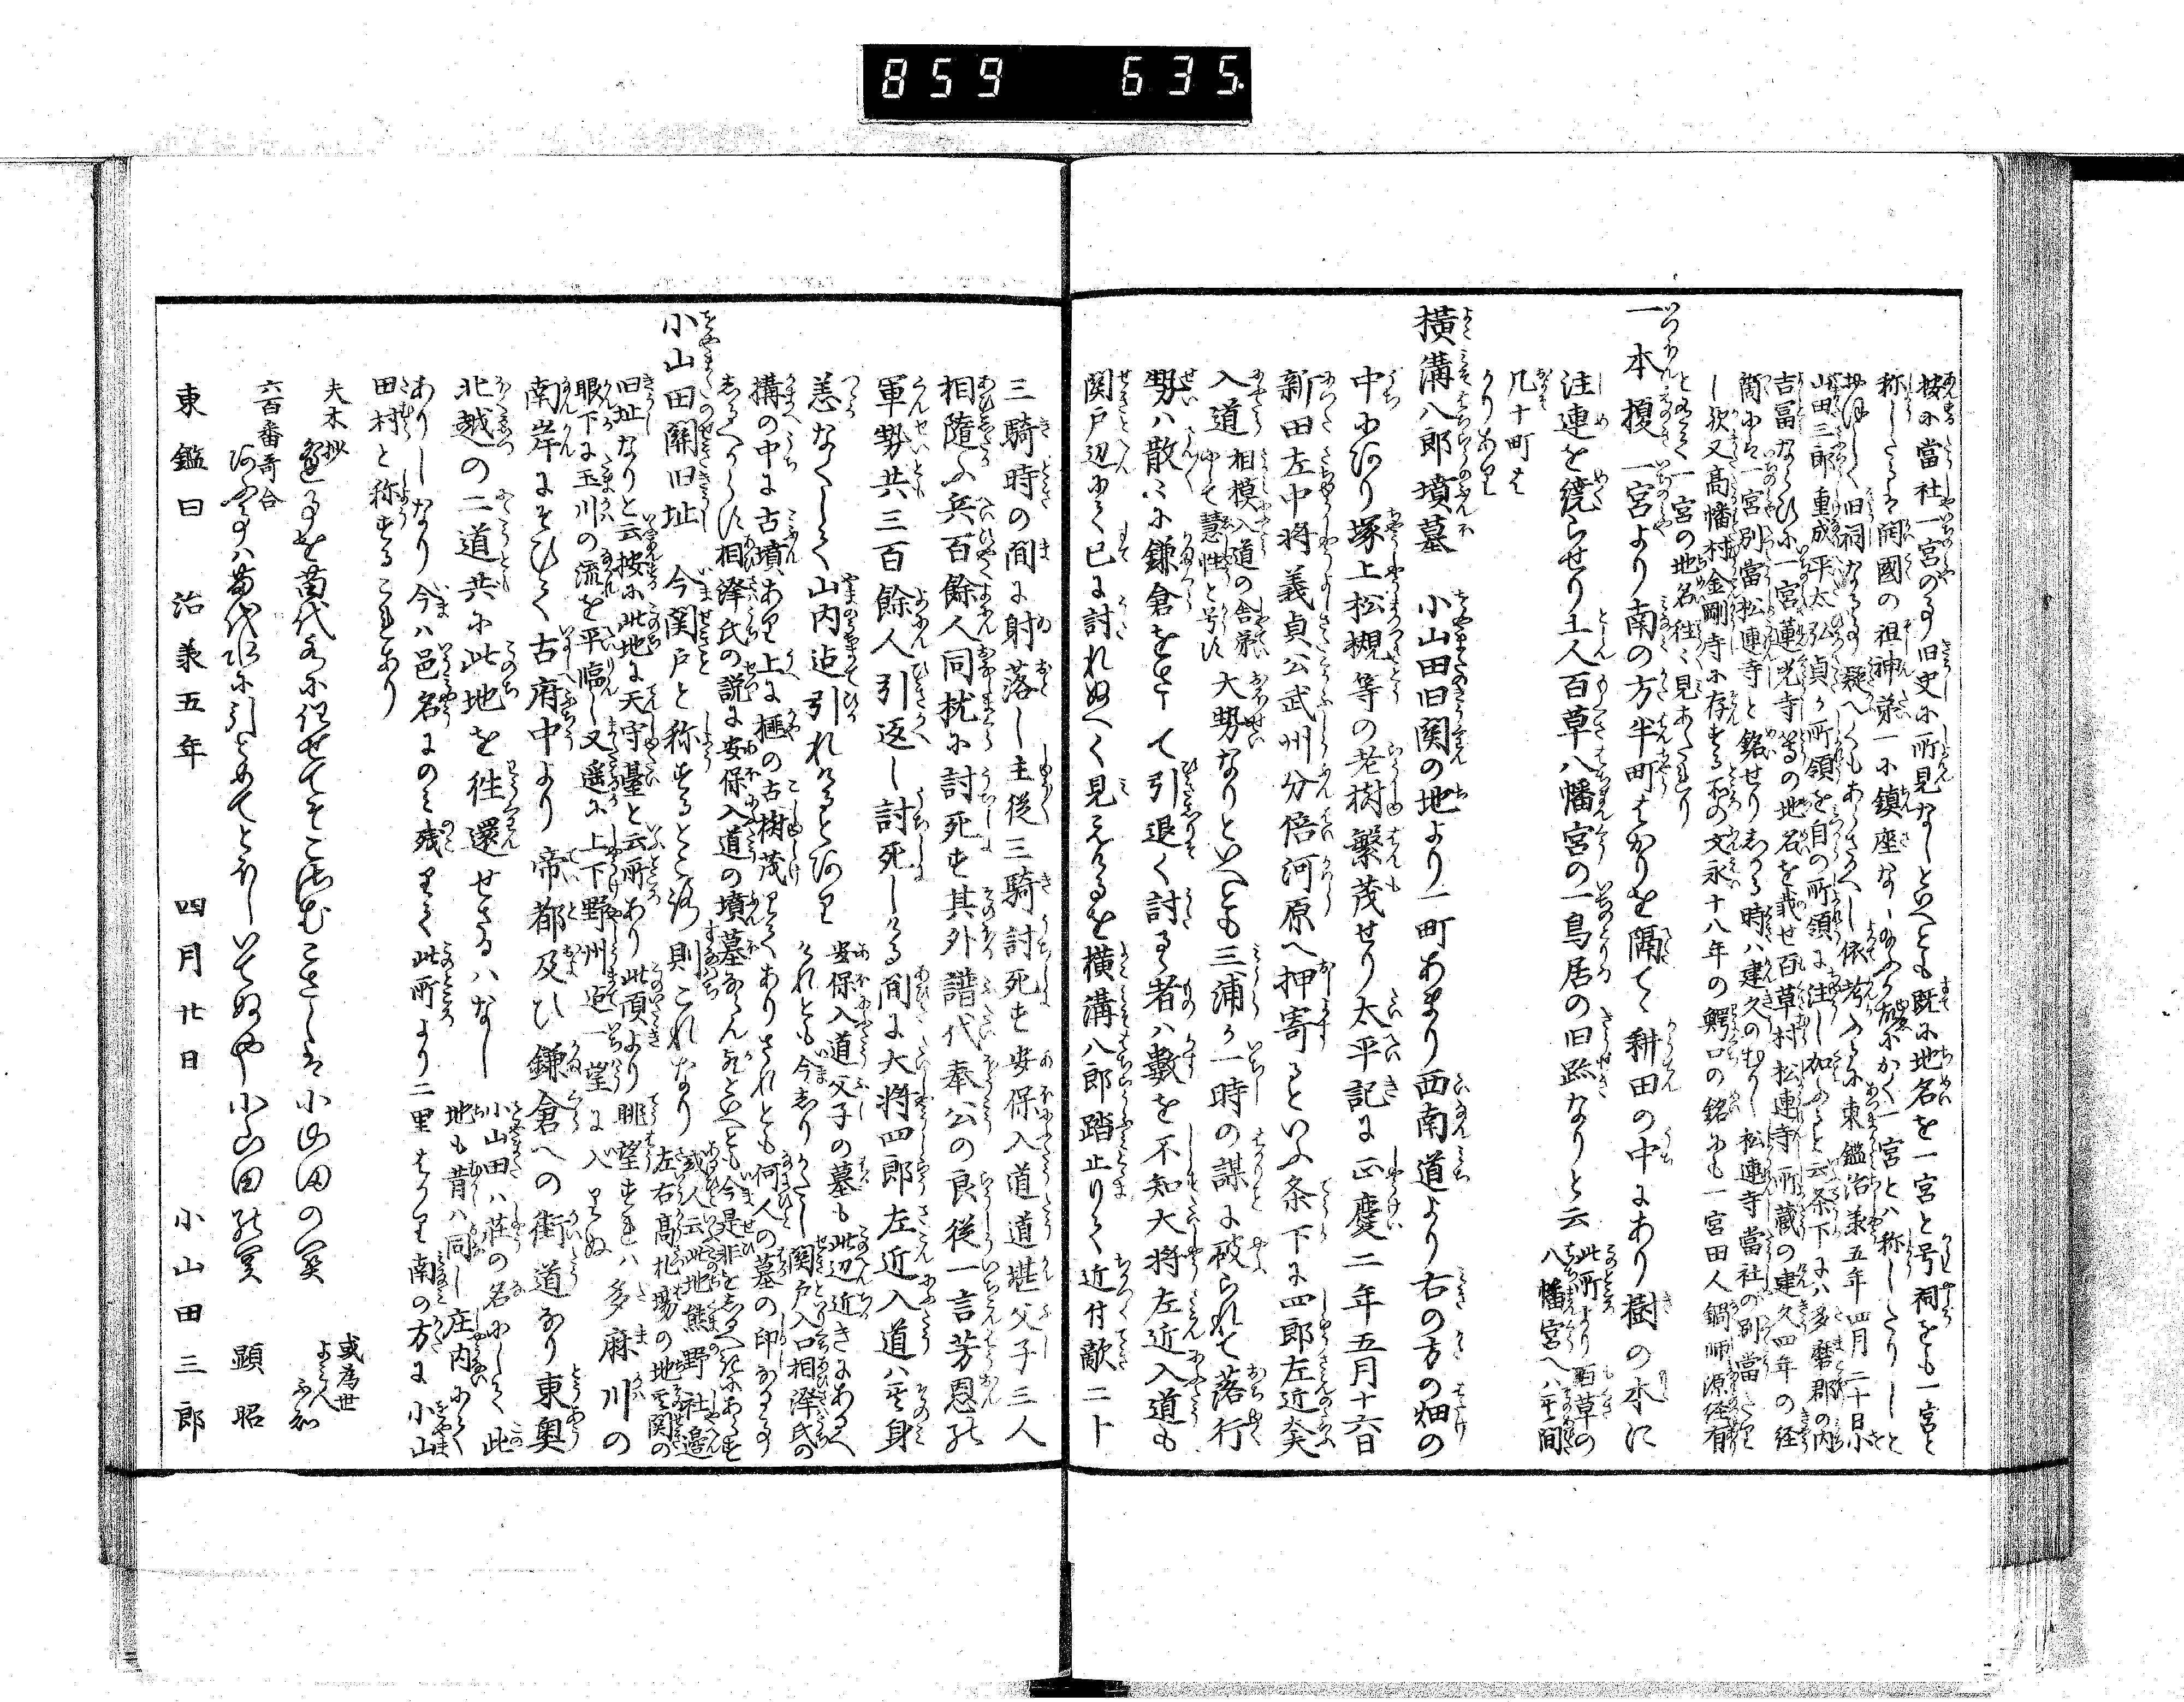 859 635
按に當社一宮の事旧史に所見なしといへとも既に地名を一宮と号祠をも一宮と
称したるは開國の祖神第一に鎮座なしかく一宮とハ称したりしと
旧祠なる事疑へくもあらさるへし依考ふるに東鑑治承五年四月二十日小
山田三郎重成平太弘貞か所領を自の所領に注し加ふると云条下にハ多磨郡の内
吉冨ならひに一宮蓮光寺等の地名を載せ百草村松連寺所蔵の建久四年の経
筒にも一宮別當松連寺と銘せりしかる時ハ建久のむかし松連寺當社の別當たり
し歟又高幡村金剛寺に存する所の文永十八年の鰐口の銘にも一宮田人鋼師源経有
とありて一宮の地名往々見あたれり
一本榎 一宮より南の方半町はかりを隔て耕田の中にあり樹の本に
注連を繞らせり土人百草八幡宮の一鳥居の旧趾なりと云 此所より百草の
八幡宮へハ其間
凡十町は
かりあり
横溝八郎墳墓 小山田旧関の地より一町あまり西南道より右の方の畑の
中にあり塚上松槻等の老樹繁茂せり太平記に正慶二年五月十六日
新田左中将義貞公武州分倍河原へ押寄るといふ条下に四郎左近太夫
入道 相模入道の舎弟
にて慧性と号す 大勢なりといへとも三浦か一時の謀に破られて落行
勢ハ散々に鎌倉をさして引退く討るゝ者ハ數を不知大将左近入道も
関戸辺にて已に討れぬへく見えけるを横溝八郎踏止りて近付敵二十
三騎時の間に射落し主従三騎討死す安保入道道堪父子三人
相随ふ兵百餘人同枕に討死す其外譜代奉公の良従一言芳恩の
軍勢共三百餘人引返し討死しける間に大将四郎左近入道ハ其身
恙なくして山内迄引れけるとあり 安保入道父子の墓も此辺近きにあるへ
けれとも今しりかたし関戸入口相澤氏の
構の中に古墳あり上に榧の古樹茂りてありされとも何人の墓の印なる事
しるへからす相澤氏の説に安保入道の墳墓ならんといへとも今是非をしるへきにあらす
小山田関旧址 今関戸と称するところ則これなり 或人云此地熊野社邊
左右高札場の地其関の
旧址なりと云按に此地に天守臺と云所あり此頂より眺望すれハ多麻川の
眼下に玉川の流を平臨し又遥に上下野州迄一望に入りぬ
南岸にそひて古府中より帝都及ひ鎌倉への街道なり東奥
北越の二道共に此地を往還せさるハなし 小山田ハ荘の名にして此
地も昔ハ同し庄内にて
ありしなり今ハ邑名にのミ残りて此所より二里はかり南の方に小山
田村と称するこれあり
夫木抄
苗代水に任せてそ小山田の関 或為世
よミ人
不知
六百番哥合
苗代水に引とめて小山田の関 顕昭
東鑑曰 治承五年 四月廿日 小山田三郎